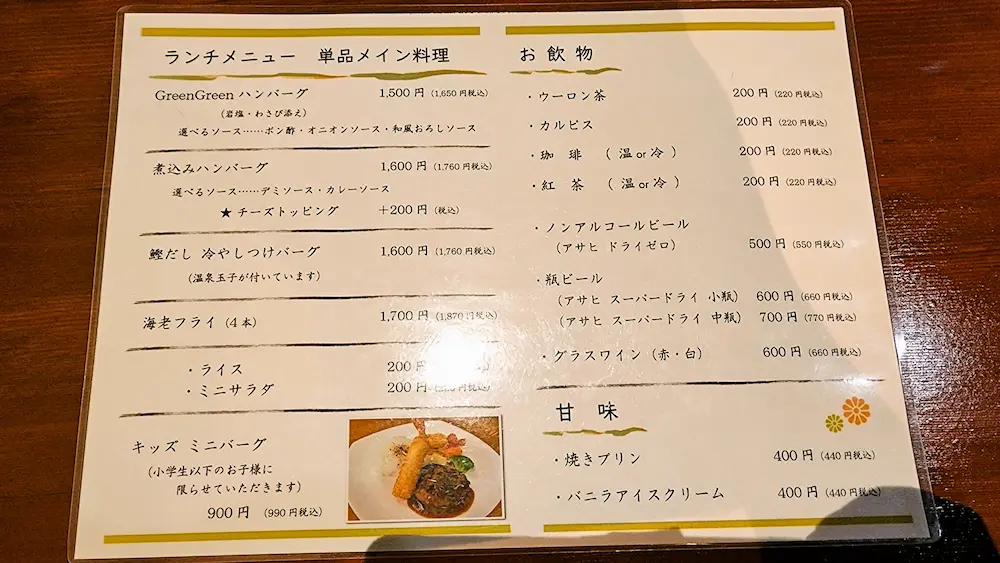 ランチメニュー 単品メイン料理
GreenGreen ハンバーグ 1,500 円 (1,650 円税込)
(岩塩・わさび添え)
選べるソース……ポン酢・オニオンソース・和風おろしソース
煮込みハンバーグ 1,600 円 (1,760 円税込)
選べるソース……デミソース・カレーソース
★ チーズトッピング +200 円 (税込)
鰹だし 冷やしつけバーグ 1,600 円 (1,760 円税込)
(温泉玉子が付いています)
海老フライ (4 本) 1,700 円 (1,870 円税込)
・ライス 200
・ミニサラダ 200 円
キッズ ミニバーグ
(小学生以下のお子様に
限らせていただきます)
900 円 (990 円税込)
お 飲 物
・ウーロン茶 200 円 (220 円税込)
・カルピス 200 円 (220 円税込)
・珈 琲 ( 温 or 冷 ) 200 円 (220 円税込)
・紅 茶 ( 温 or 冷 ) 200 円 (220 円税込)
・ノンアルコールビール
(アサヒ ドライゼロ) 500 円 (550 円税込)
・瓶ビール
(アサヒ スーパードライ 小瓶) 600 円 (660 円税込)
(アサヒ スーパードライ 中瓶) 700 円 (770 円税込)
・グラスワイン (赤・白) 600 円 (660 円税込)
甘 味
・焼きプリン 400 円 (440 円税込)
・バニラアイスクリーム 400 円 (440 円税込)